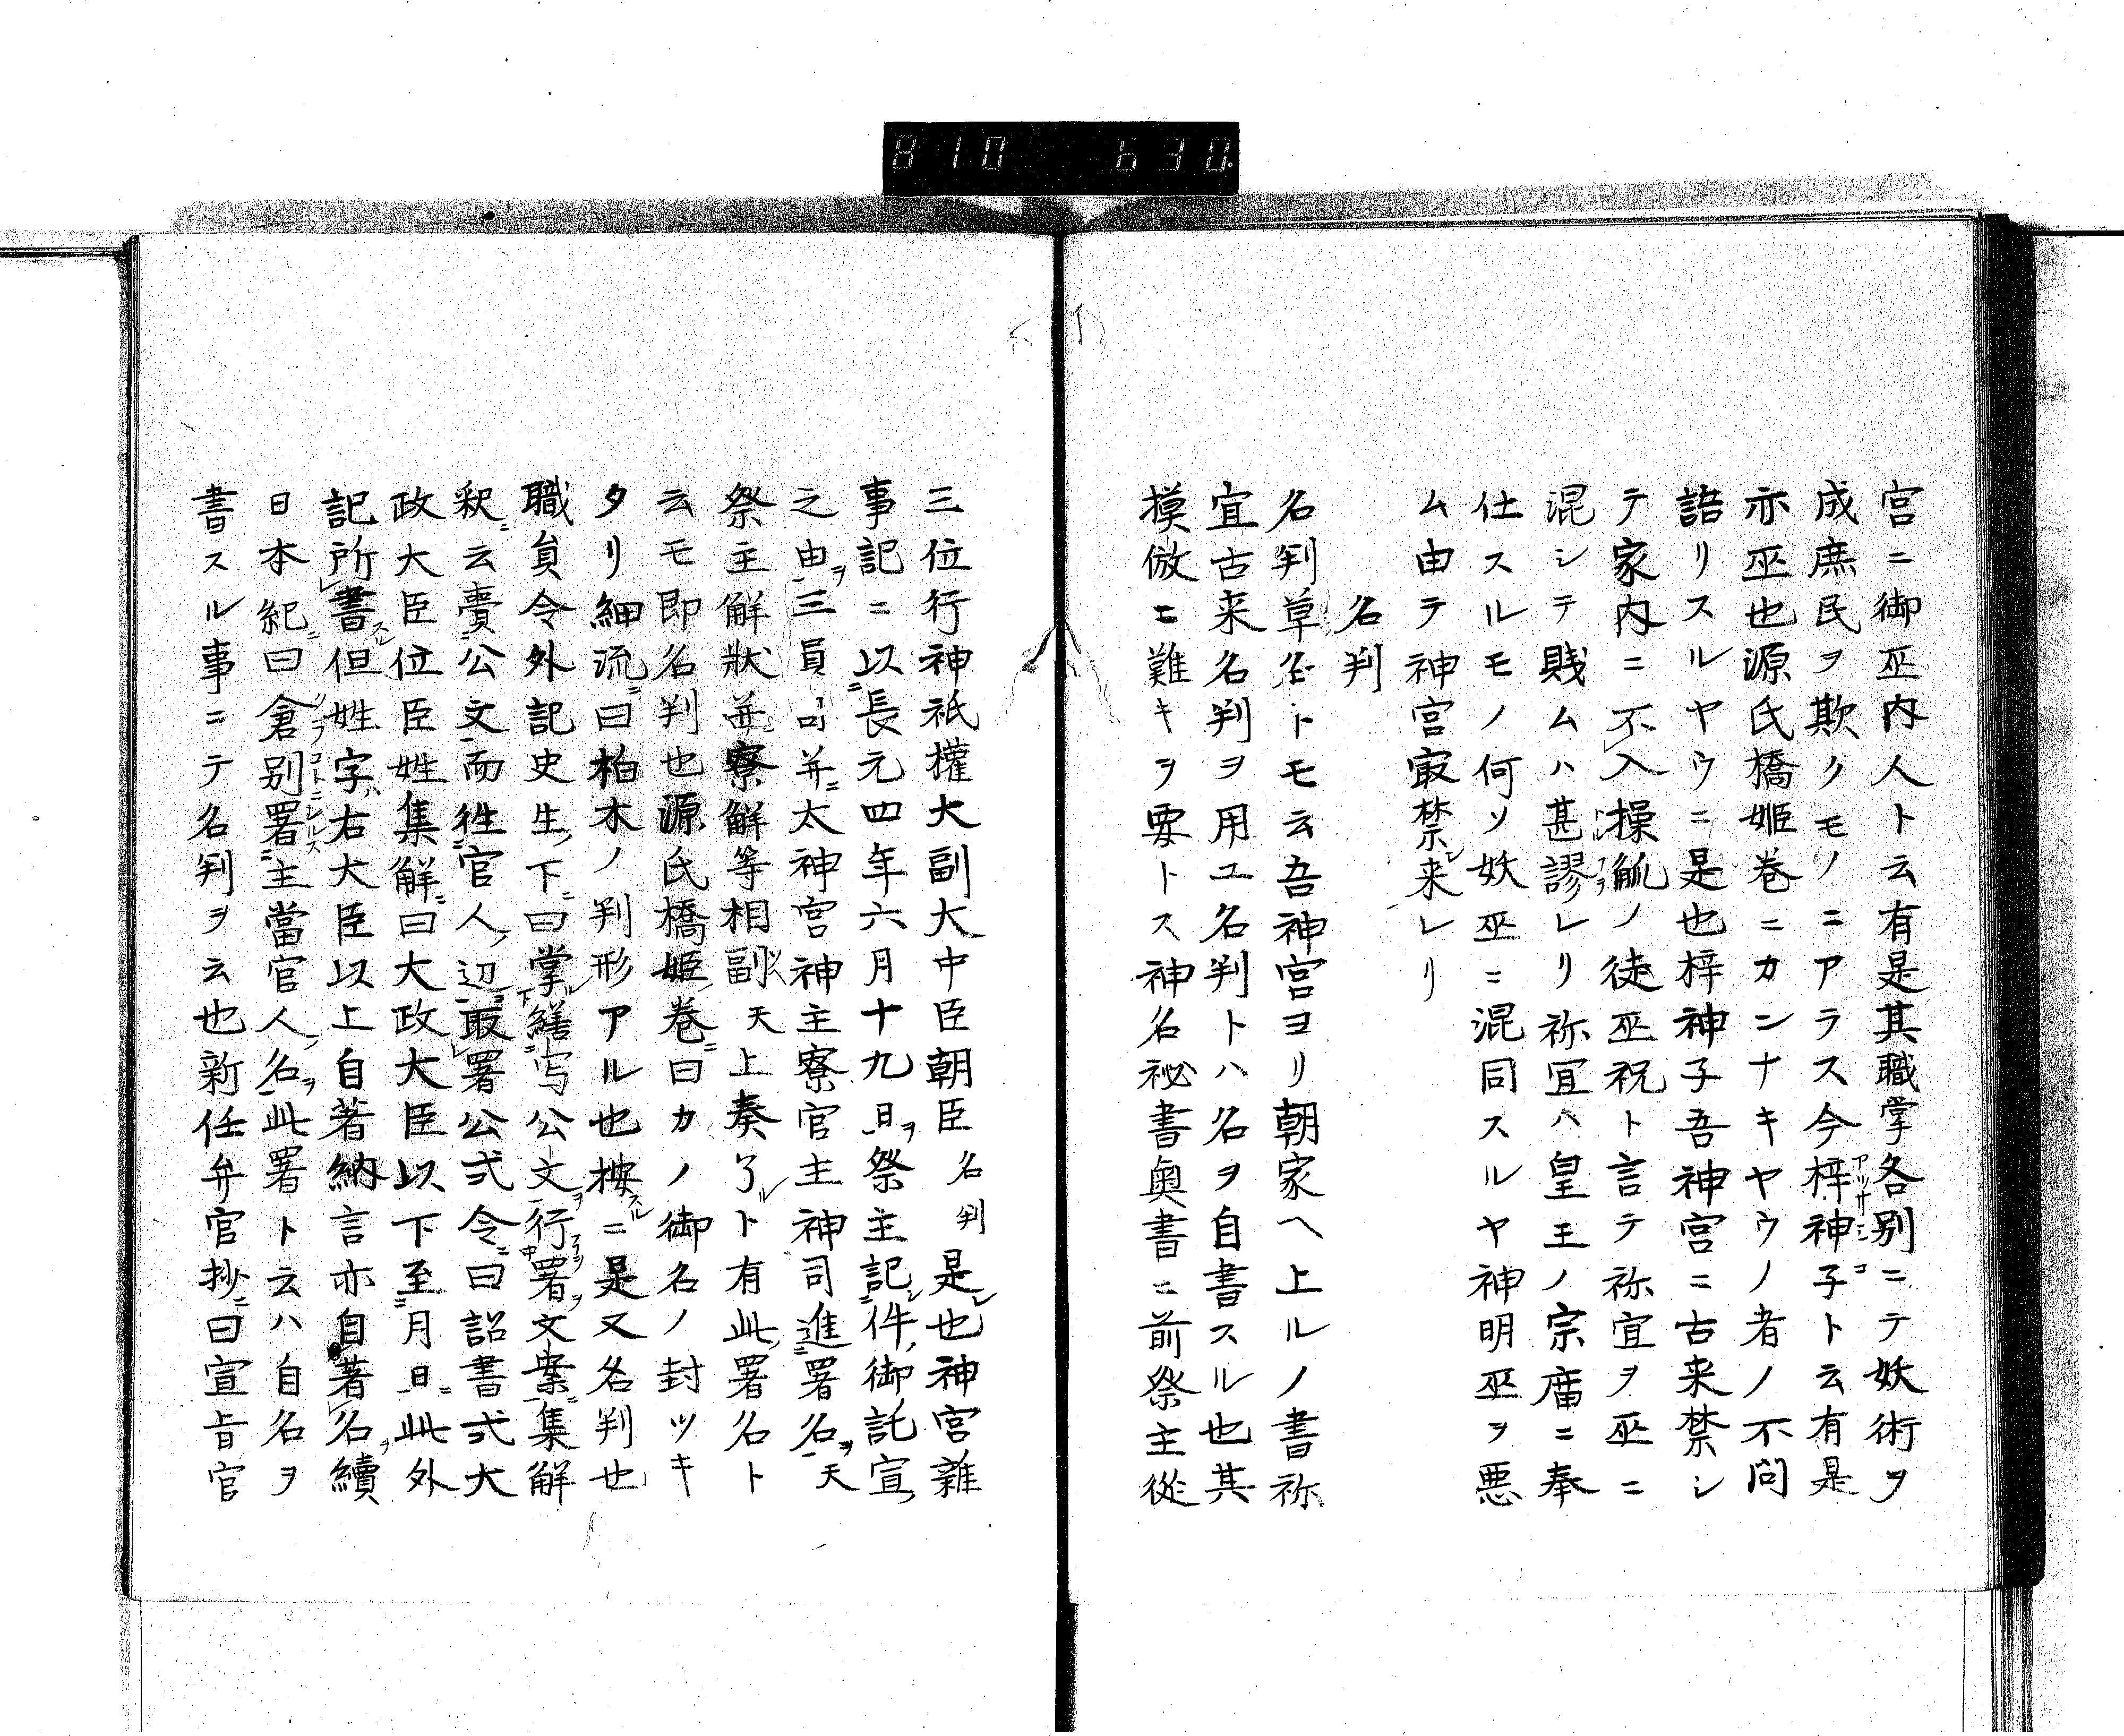 810 630
宮ニ御巫内人ト云有是其職掌各別ニテ妖術ヲ
成庶民ヲ欺クモノニアラス今梓神子ト云有是
亦巫也源氏橋姫巻ニカンナキヤウノ者ノ不問
語リスルヤウニ是也梓神子吾神宮ニ古来禁シ
テ家内ニ不入操觚ノ徒巫祝ト言テ祢宜ヲ巫ニ
混シテ賎ムハ甚謬レリ祢宜ハ皇王ノ宗廟ニ奉
仕スルモノ何ソ妖巫ニ混同スルヤ神明巫ヲ悪
ム由テ神宮㝡禁来レリ
名判
名判草名トモ云吾神宮ヨリ朝家ヘ上ルノ書祢
宜古来名判ヲ用ユ名判トハ名ヲ自書スル也其
摸倣ニ難キヲ要トス神名祕書奥書ニ前祭主従
三位行神祇權大副大中臣朝臣名判是也神宮雜
事記ニ以長元四年六月十九日祭主記件御託宣
之由三員司并太神宮神主寮官主神司進署名天
祭主解状并寮解等相副天上奏了ト有此署名ト
云モ即名判也源氏橋姫巻曰カノ御名ノ封ツキ
タリ細流曰柏木ノ判形アル也按ニ是又名判也
職員令外記史生下曰掌繕写公文行署文案集解
釈云賷公文而徃官人辺取署公式令曰詔書式大
政大臣位臣姓集解曰大政大臣以下至月日此外
記所書但姓字右大臣以上自著納言亦自著名續
日本紀曰倉別署主當官人名此署ト云ハ自名ヲ
書スル事ニテ名判ヲ云也新任弁官抄曰宣旨官